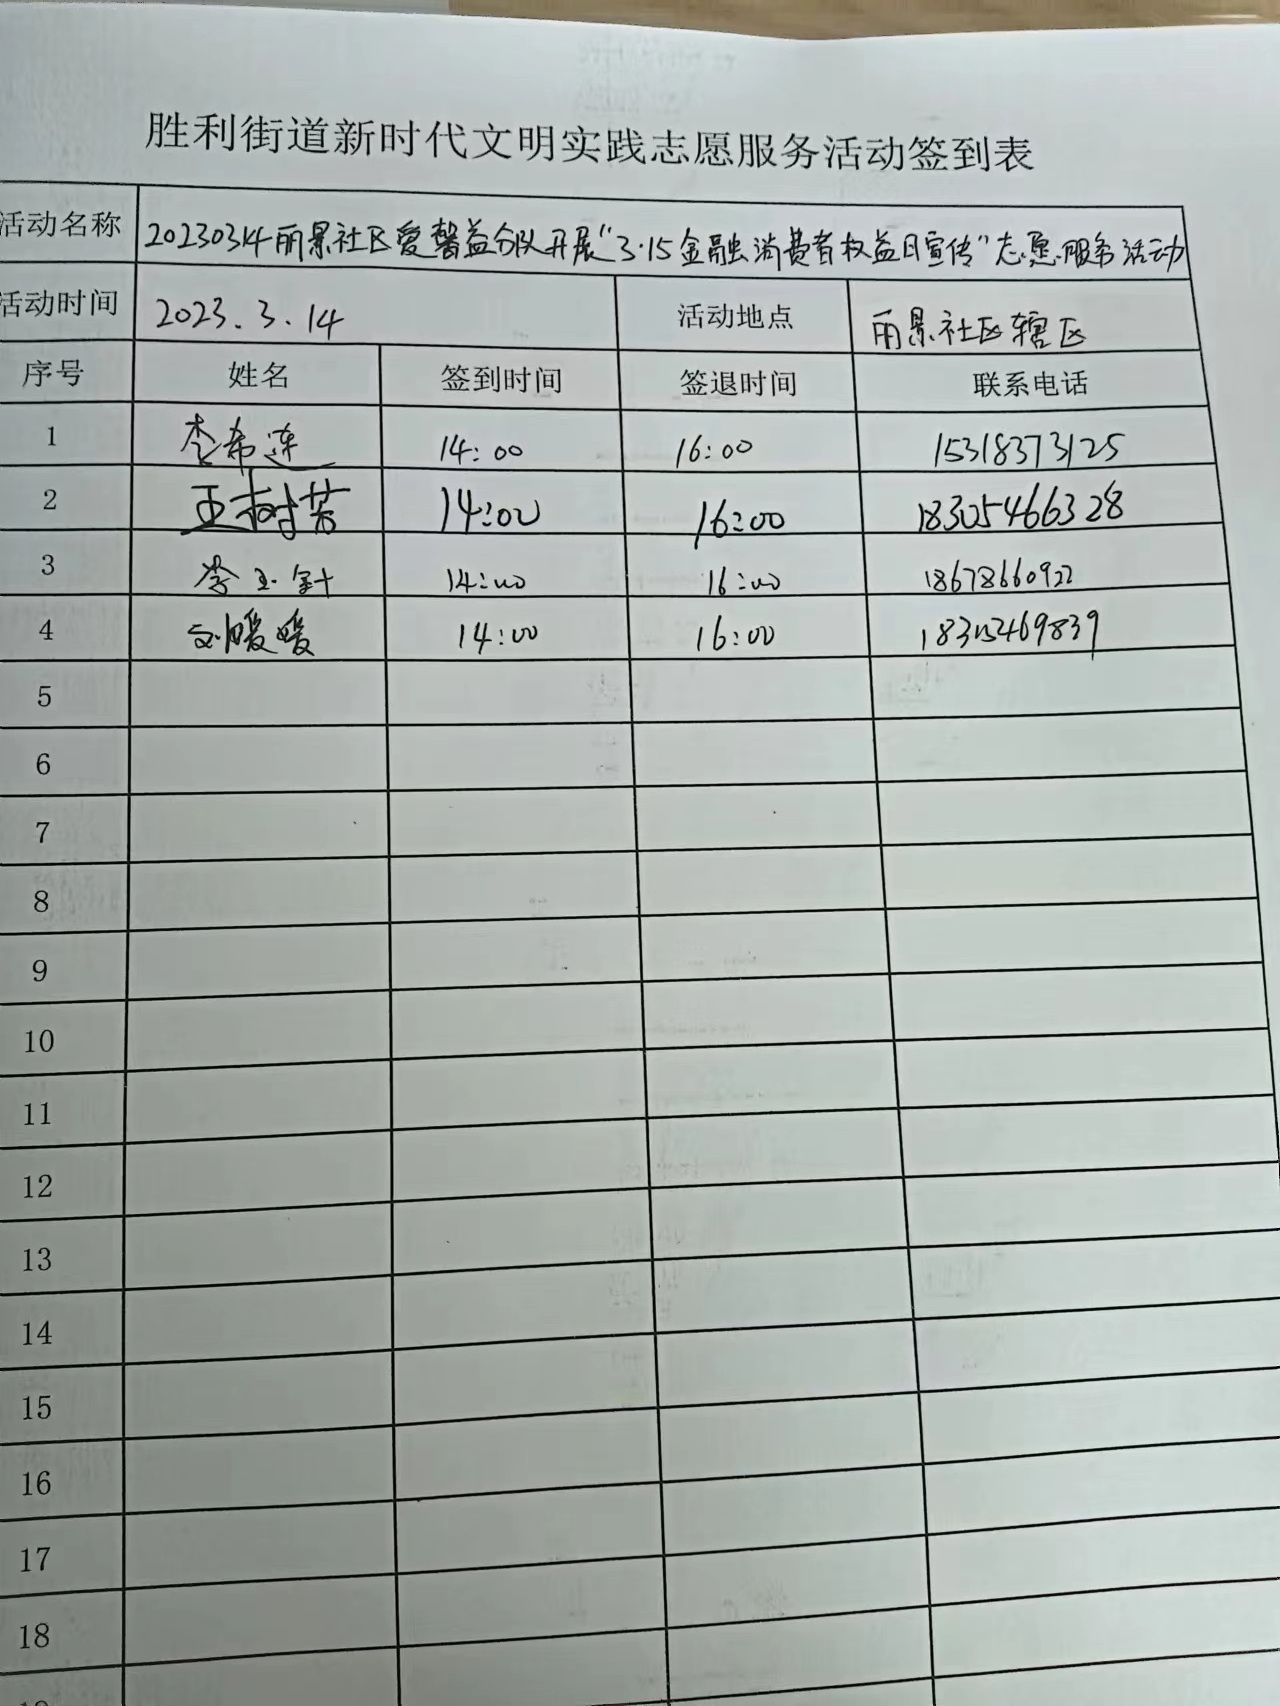 胜利街道新时代文明实践志愿服务活动签到表
活动名称 20230314丽景社区爱馨益分队开展“3·15金融消费者权益日宣传”志愿服务活动
活动时间 2023.3.14 活动地点 丽景社区辖区
序号 姓名 签到时间 签退时间 联系电话
1 李希连 14:00 16:00 15318373125
2 王树芳 14:00 16:00 18305466328
3 李玉针 14:00 16:00 18678660922
4 刘暖暖 14:00 16:00
5
6
7
8
9
10
11
12
13
14
15
16
17
18